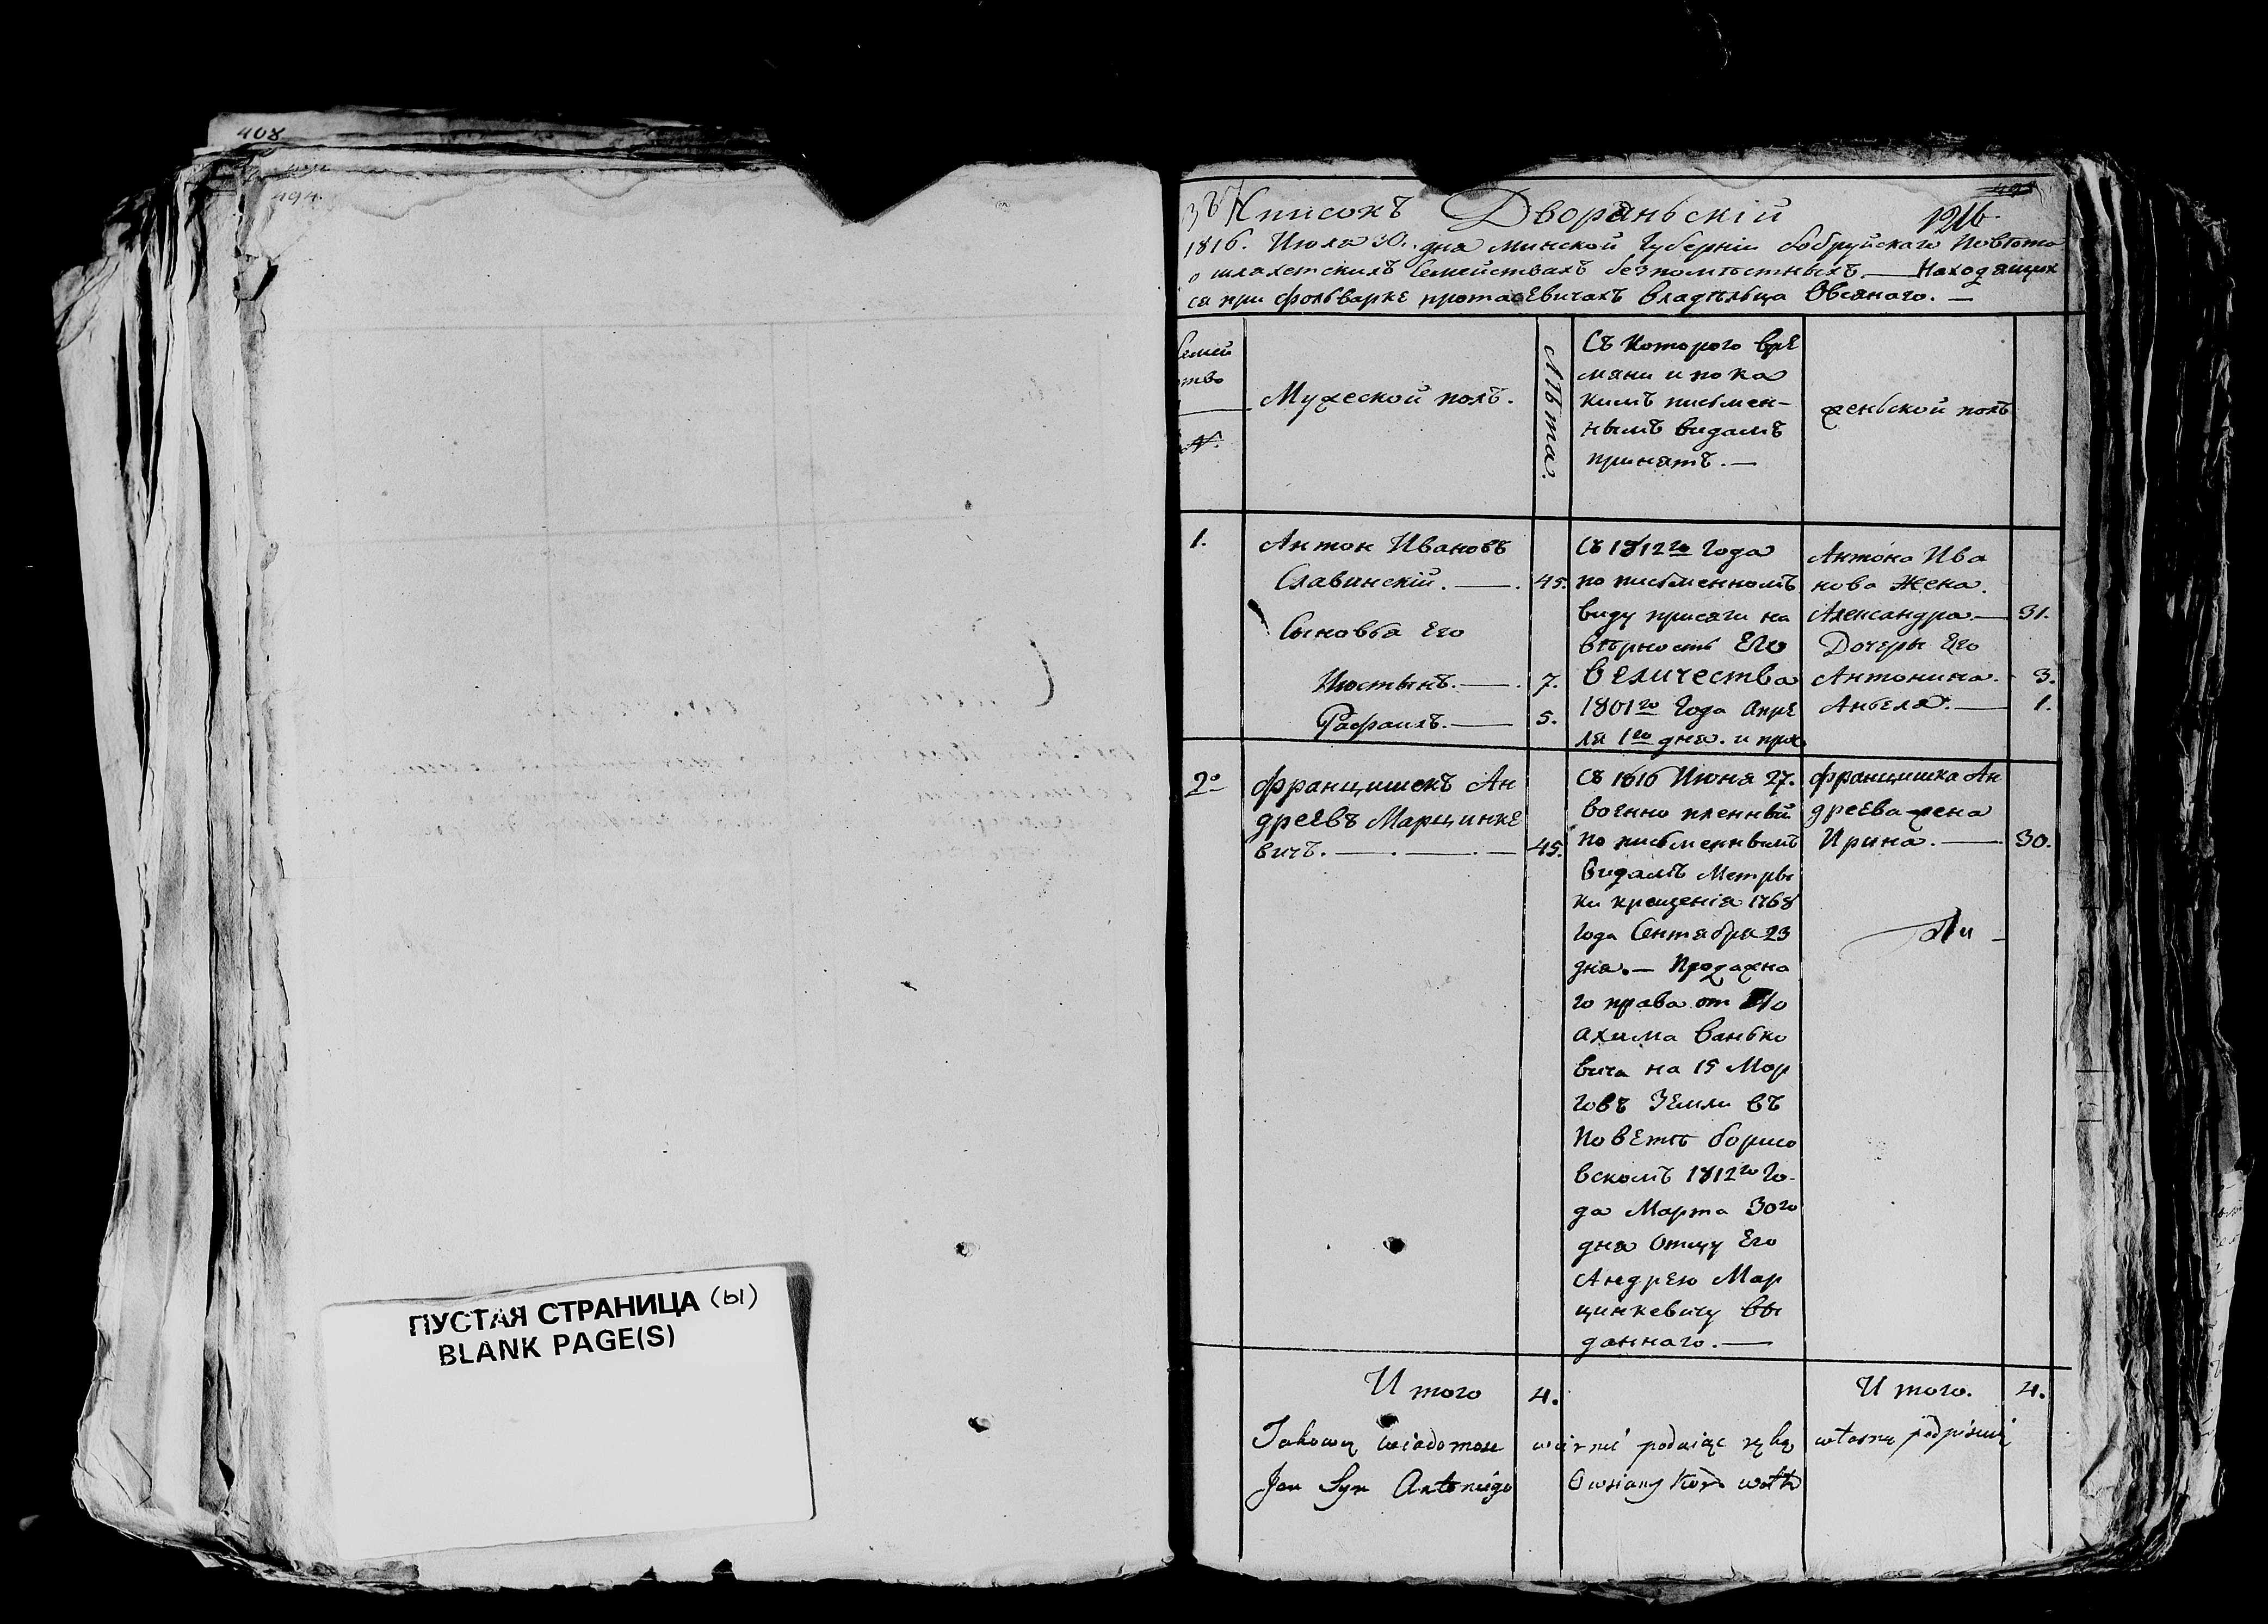 408
494.
ПУСТАЯ СТРАНИЦА (ы)
BLANK PAGE(S)
1216.
Списокъ Дворяньскiй
1816. Июля 30. дня минской Губернiи бобруйскаго Повѣта
о шляхетскихъ Семействахъ безпомѣстныхъ. — Находящих
ся при фольварке протасЕвичахъ владѣльца Овсянаго. —
Семей
ство
№.
Мужеской полъ.
Лѣта.
Съ которого врЕ
мяни и по ка
кимъ письмен-
нымъ видамъ
принятъ. —
женьской полъ
1.
Антон Ивановъ
Славинскiй. — 45.
Сыновья Его
Июстынъ. — 7.
Рафаилъ. — 5.
Съ 1812го Года
по письменномъ
виду присяги на
вѣрность ЕГО
ВЕличества
1801го Года АпрЕ
ля 1го дня. и проч
Антона Ива
нова Жена.
Александра. — 31.
Дочеры Его
Антонина. - 3.
Анеля. — 1.
2о
францишекъ Ан
дреЕвъ МарцинкЕ
вичъ. — . — . — 45.
Съ 1816 Июня 27.
военно пленный
по письменнымъ
видамъ Метры
ки крещенiя 1768
Года Сентября 23
дня. — Продажна
го права от Ио
ахима Ванько
вича на 15 Мор
говъ ЗЕмли въ
ПовЕтѣ борисо
вскомъ 1812го Го-
да Марта 30го
дня Отцу Его
АндрЕю Мар
цинкевичу вы
данного. —
францишка Ан
дреЕва жена
Ирина. — 30.
Итого 4.
Итого. 4.
Takową wiadomosc wiernie podaiąc ręką własną podpisuię
Jan Syn Antoniego Owsiany